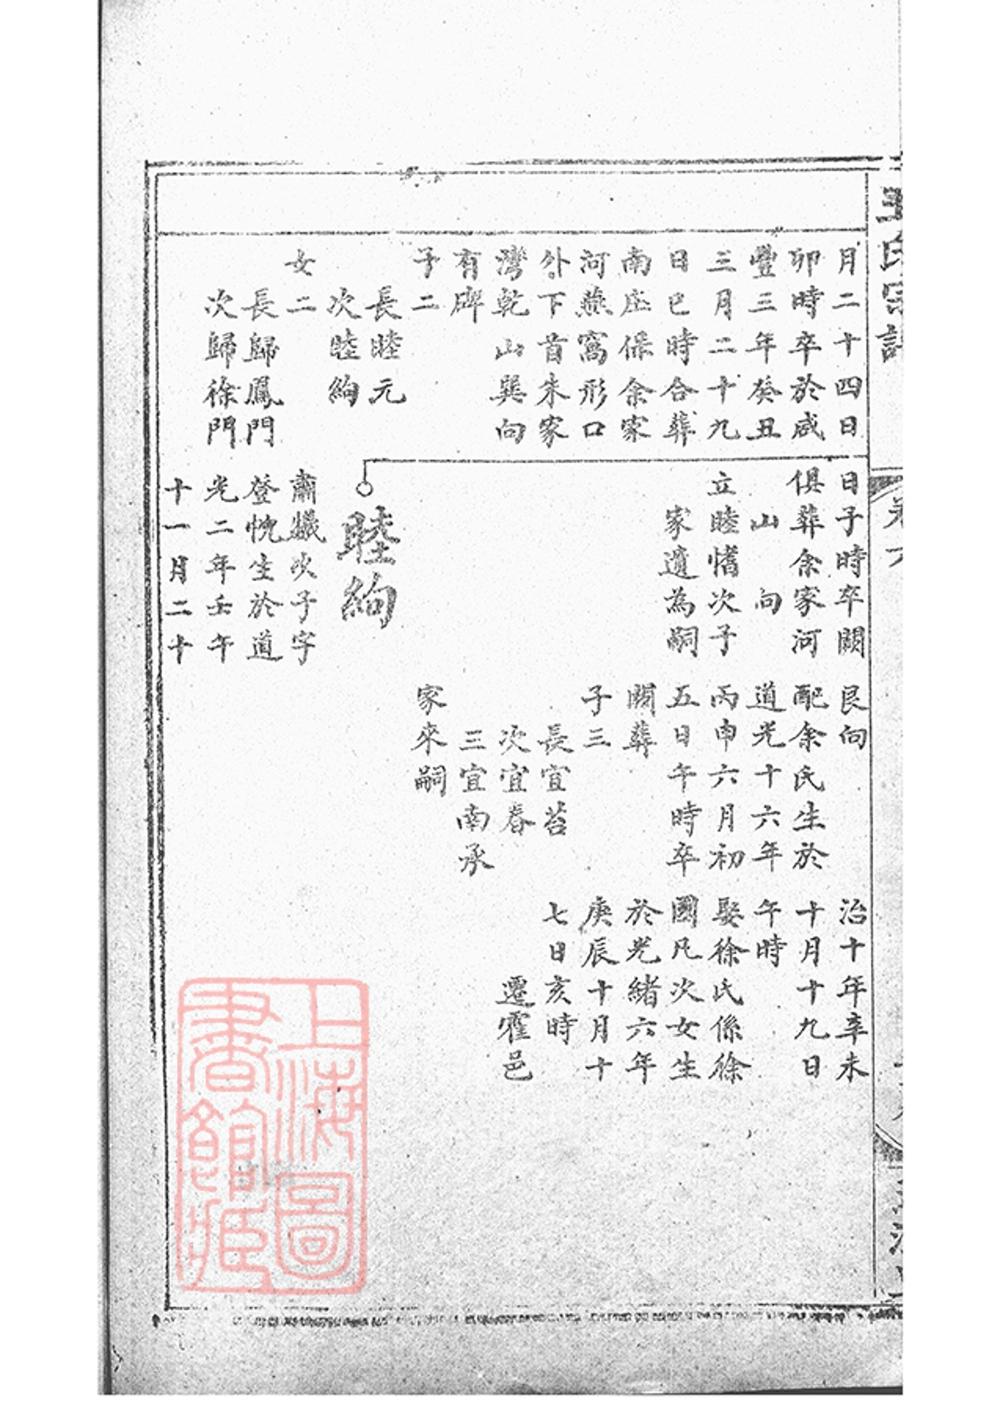 王氏宗譜
卷六
月二十四日
卯時卒於咸
豐三年癸丑
三月二十九
日巳時合葬
南庄保余家
河燕窩形口
外下首朱家
灣乾山巽向
有碑
子二
長睦元
次睦絢
女二
長歸鳳門
次歸徐門
日子時卒闕
俱葬余家河
山 向
立睦慉次子
家遺為嗣
睦絢
肅次子字
登生於道
光二年壬午
十一月二十
艮向
配余氏生於
道光十六年
丙申六月初
五日午時卒
闕葬
子三
長宜苔
次宜春
三宜南承
家來嗣
治十年辛未
十月十九日
午時
娶徐氏係徐
國凡次女生
於光緒六年
庚辰十月十
七日亥時
遷霍邑
上海圖
書館藏